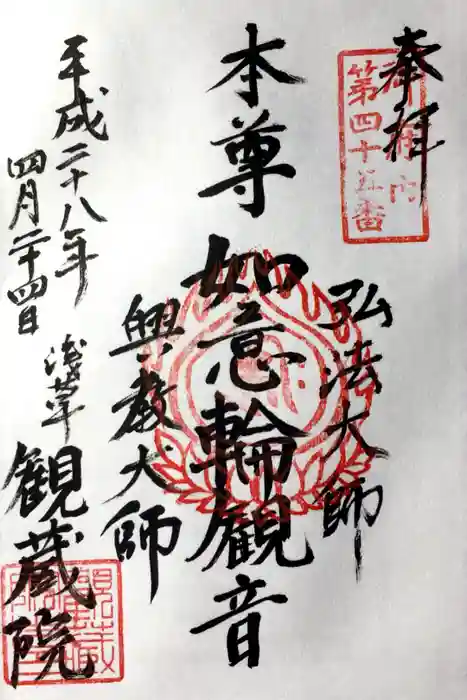 奉拝
御府内
第四十五番
弘法大師
本尊
如意輪観音
興教大師
平成二十八年
四月二十四日
浅草
観蔵院